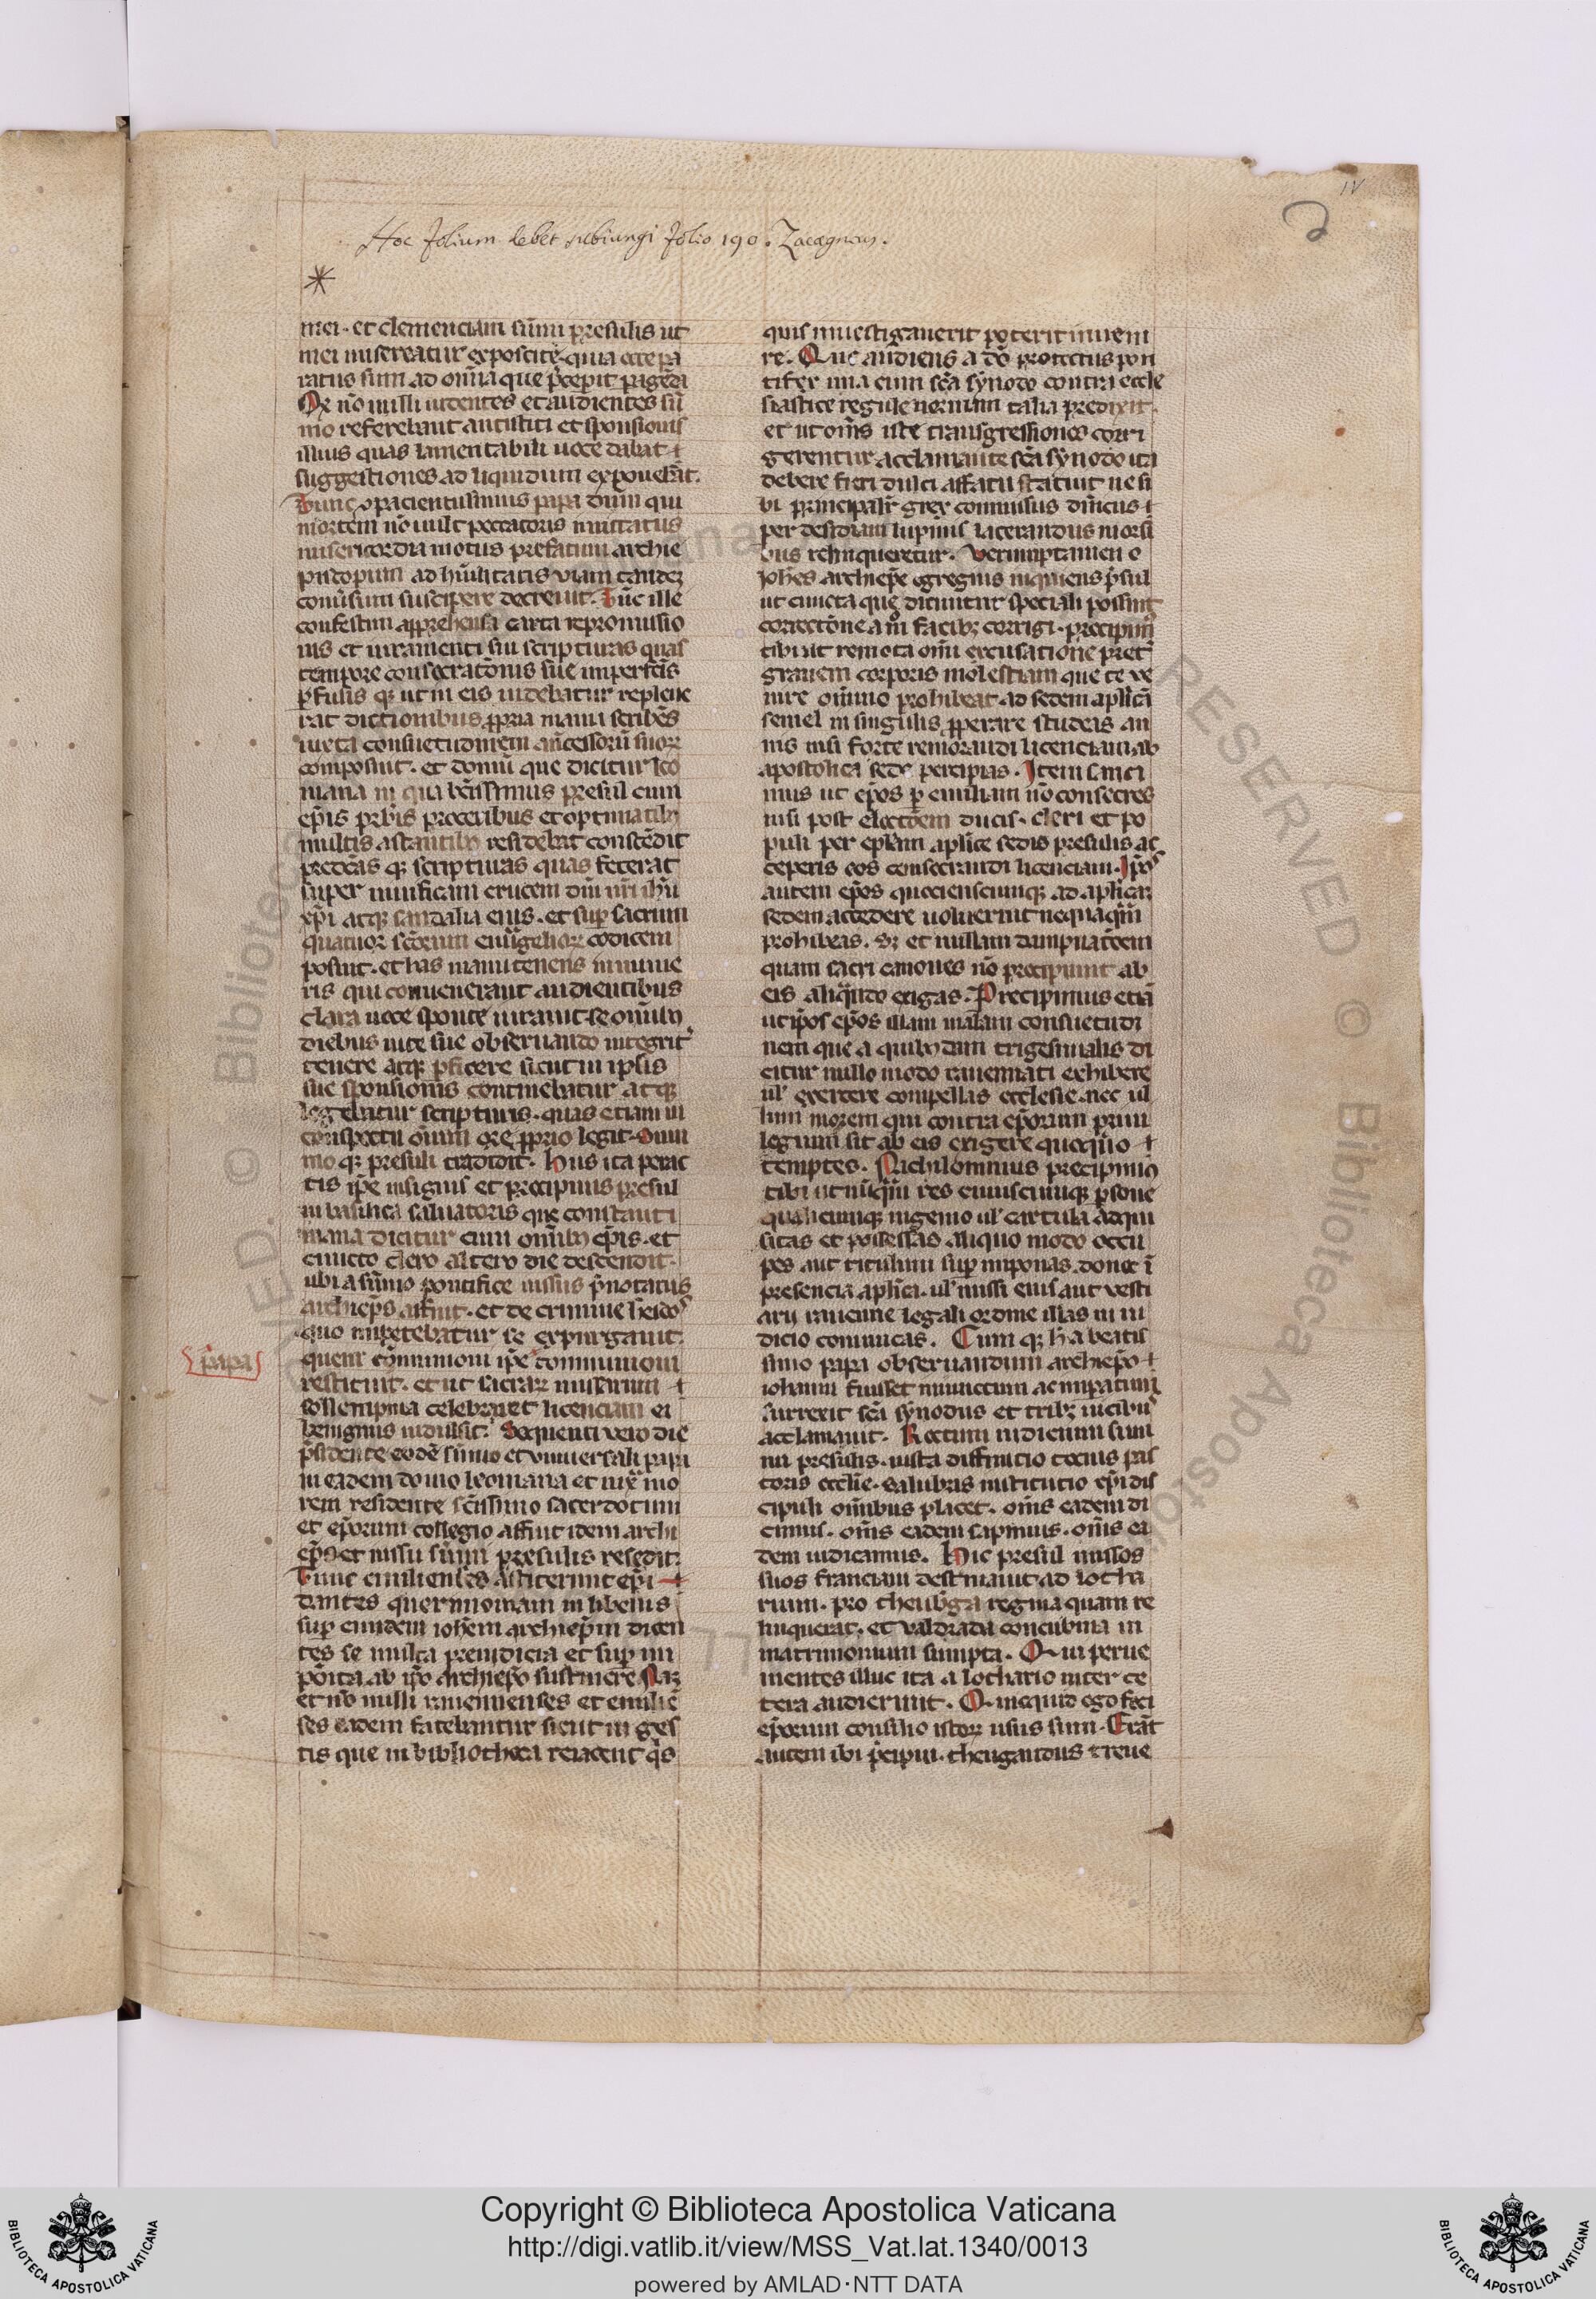 IV
2
Hoc folium debet subiungi folio 190. Zacagnus.
*
mei. et clemenciam sūmi presulis ut
mei misereatur exposcite. quia ecce pa
ratus sum ad om̄ia que p̄cepit pagēda
Qd nō nulli uidentes et audientes sū
mo referebant antistiti et sponsionis
illius quas lamentabili uoce dabat
suggestiones ad liquidum exponebāt.
Tunc pacientissimus papa dum qui
mortem nō uult peccatoris imitatus
misericordia motus prefatum archie
pīscopum ad hūilitatis viam tandeȝ
conūsum suscipere decreuit. Tūc ille
confestim apprehensa carta repromissio
nis et iuramenti sui scripturas quas
tempore consecratōnis sue imperfc̄is
p̄fusis qȝ ut in eis uidebatur repleue
rat dictionibus ꝓpria manu scribēs
iuxta consuetudinem an̄cessorū suoꝝ
composuit. et domū que dicitur leo
niana in qua bc̄issimus presul cum
ep̄is prb̄is proceribus et optimatibȝ
multis astantibȝ residebat conscēdit
 qȝ scripturas quas fecerat
super uiuificam crucem dn̄i nr̄i ih̄u
xp̄i atqȝ sandalia eius. et suꝑ sacrum
quatuor sc̄orum euu̅gelioꝝ codicem
posuit. et has manu tenens in
ris qui conuenerant audientibus
clara uoce sponte iurauit se om̄ibȝ
diebus uite sue obseruando integrit̾
tenere atqȝ ꝑficere sicut in ipsis
sue sponsionis continebatur atqȝ
legebatur scripturis. quas etiam in
conspectu om̄ium ore ꝓprio legit. sum
mo qȝ presuli tradidit. Hiis ita perac
tis ip̄e insignis et precipuus presul
in basilica saluatoris que constanti
niana dicitur cum om̄ibȝ ep̄is. et
cuncto clero altero die descendit.
ubi a sūmo pontifice iussus p̄notatus
archiep̄s affuit. et de crimine
quo impetebatur se expurgauit.
quem cōmunioni ip̄e communioni
papa
restituit. et ut sacraꝝ missarum
sollempnia celebraret licenciam ei
benignus indulsit. Sequenti vero die
p̄sidente eodē sūmo et vniuersali papa
in eadem domo leoniana et iux̄ mo
rem residente sc̄issimo sacerdotum
et ep̄orum collegio affuit idem archi
ep̄s et iussu sūmi presulis resedit.
Tunc emilienses astiterunt ep̄i
dantes querimoniam in libellis
suꝑ eundem ioh̄em archiep̄m dicen
tes se multa preiudicia et suꝑ im
pōita ab ip̄o archiep̄o sustinere. Naȝ
et nō nulli rauennenses et emiliē
ses eadem fatebantur sicut in ges
tis que in bibliotheca reiacent q̄s
quis inuestigauerit poterit inueni
re. Que audiens a dō protectus pon
tifex una cum sc̄a synodo contra eccle
siastice regule normam talia predixit.
et ut om̄s iste transgressiones corri
gerentur acclamante sc̄a synodo ita
debere fieri dulci affatu statuit ne si
bi principalit̾ grex commissus dn̄icus
per desidiam lupinis lacerandus morsi
bus relinqueretur. Verumptamen o
ioh̄es archiep̄e egregius inquiens p̄sul
ut cuncta que dicuntur speciali possint
correctōne a nr̄i facibȝ corrigi. precipim̾
tibi ut remota om̄i excusatione pret̾
grauem corporis molestiam que te ve
nire om̄ino prohibeat ad sedem apl̄icā
semel in singulis ꝓperare studeas an
nis nisi forte remorandi licenciam ab
apostolica sede percipias. Item sanci
mus ut ep̄os ꝑ emiliam nō consecres
nisi post electōem ducis. cleri et po
puli per ep̄lam apl̄ice sedis presulis ac
ceperis eos consecrandi licenciam. Ip̄os
autem ep̄os quociens cumqȝ ad apl̄icaȝ
sedem accedere uoluerint nequaq̄m
prohibeas. sȝ et nullam dampnatōem
quam sacri canones nō precipiunt ab
eis aliq̄ndo exigas. Precipimus etiā
ut ip̄os ep̄os illam malam consuetudi
nem que a quibȝdam trigesimalis di
citur nullo modo rauennati exhibere
ul̄ exercere compellas ecclesie. nec ul
lum morem qui contra ep̄orum priui
legium sit ab eis exigere quoquō
temptes. Nichilominus precipimus
tibi ut nūq̄m res cuiuscumqȝ ꝑsone
qualicumqȝ ingenio ul̄ cartula adqui
sitas et possessas aliquo modo occu
pes aut titulum suꝑ imponas. donec ī
presencia apl̄ica. ul̄ missi eius aut vesti
arii rauenne legali ordine illas in iu
dicio conuincas. Cum qȝ h̄ a beatis
simo papa obseruandum archiep̄o
iohanni fuisset iniunctum ac imperatum
surrexit sc̄a synodus et tribȝ uicibus
acclamauit. Rectum iudicium sum
mi presulis. iusta diffinicio tocius pas
toris eccl̄ie. salubris institucio xp̄i dis
cipuli om̄ibus placet. om̄s eadem di
cimus. om̄s eadem sapimus. om̄s ea
dem iudicamus. Hic presul missos
suos franciam destinauit ad lotha
rium. pro theub̄ga regina quam re
linquerat. et Valdrada concubina in
matrimonium sumpta. Qui perue
nientes illuc ita a lothario inter ce
tera audierunt. Q inquid ego feci
ep̄orum consilio istoꝝ usus sum. Erāt
autem ibi p̄cipui. theugaudus treue
Copyright © Biblioteca Apostolica Vaticana
http://digi.vatlib.it/view/MSS_Vat.lat.1340/0013
powered by AMLAD·NTT DATA
BIBLIOTECA APOSTOLICA VATICANA
BIBLIOTECA APOSTOLICA VATICANA